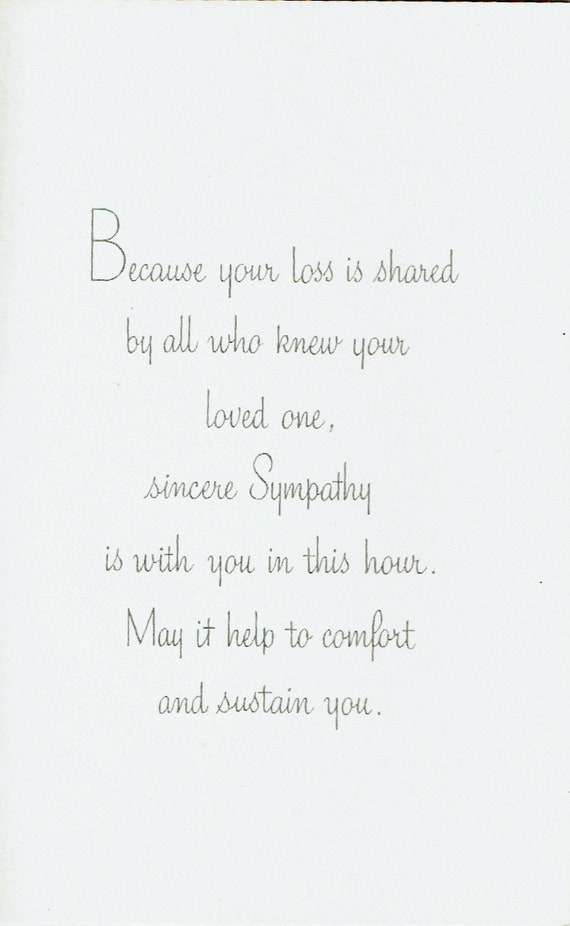 Because your loss is shared
by all who knew your
loved one,
sincere Sympathy
is with you in this hour.
May it help to comfort
and sustain you.